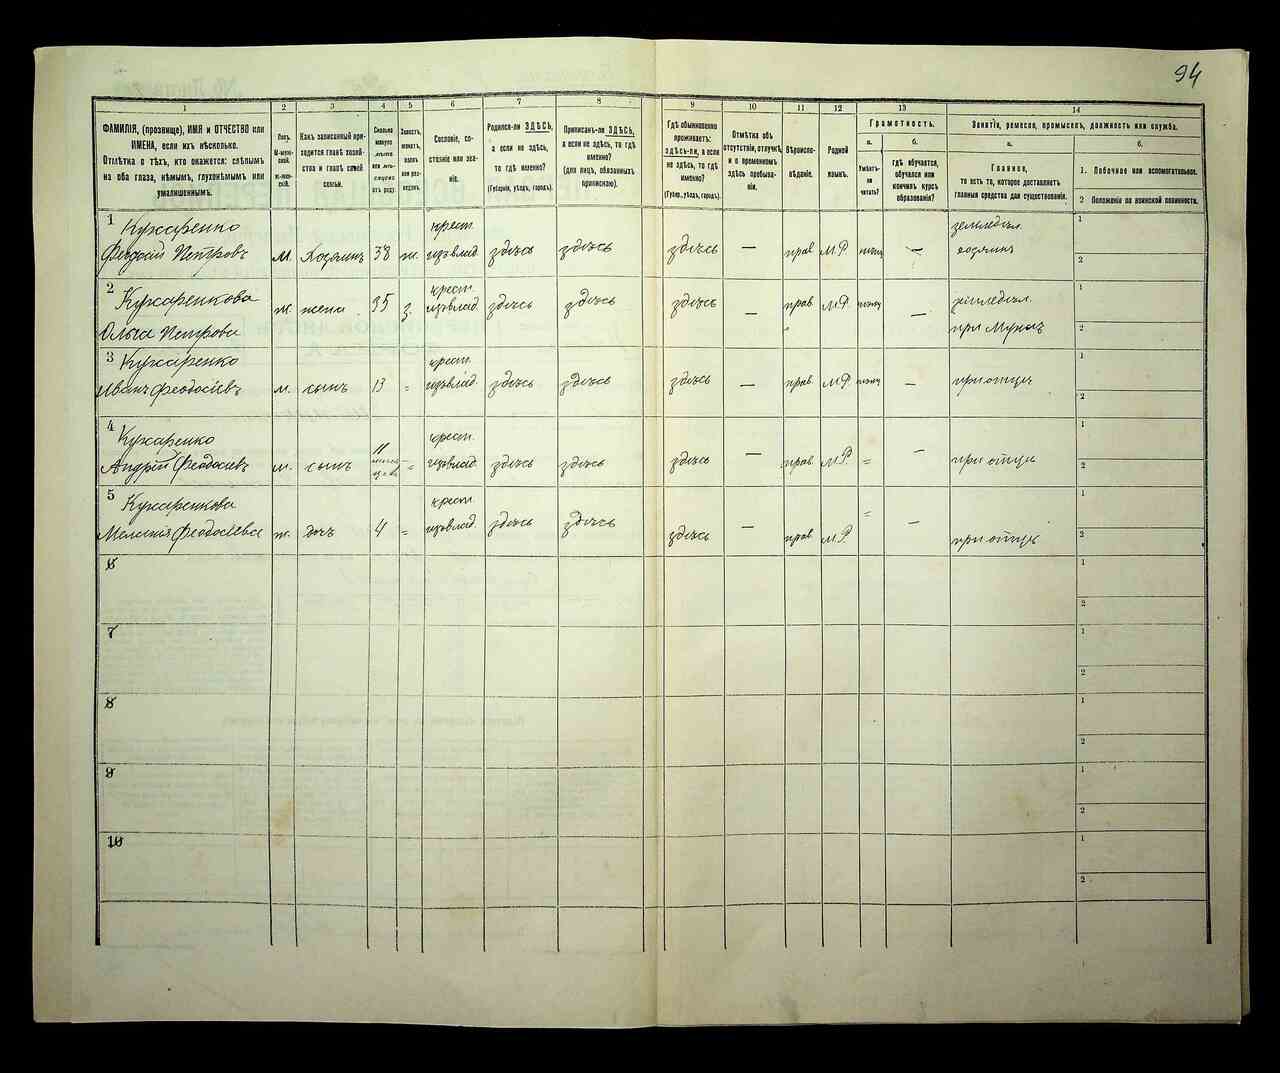 94
1
2
3
4
5
6
7
8
9
10
11
12
13
14
ФАМИЛІЯ, (прозвище), ИМЯ и ОТЧЕСТВО или
ИМЕНА, если ихъ нѣсколько.
Отмѣтка о тѣхъ, кто окажется: слѣпымъ
на оба глаза, нѣмымъ, глухонѣмымъ или
умалишеннымъ.
Полъ.
М-мужской.
Ж-женскій.
Какъ записанный приходится главѣ хозяйства и главѣ своей семьи.
Сколько минуло лѣтъ или мѣсяцевъ отъ роду.
Холостъ, женатъ, вдовъ или разведенъ.
Сословіе, состояніе или званіе.
Родился-ли ЗДѢСЬ,
а если не здѣсь,
то гдѣ именно?
(Губернія, уѣздъ, городъ).
Приписанъ-ли ЗДѢСЬ,
а если не здѣсь, то гдѣ
именно?
(для лицъ, обязанныхъ
припискою).
Гдѣ обыкновенно
проживаетъ:
здѣсь-ли, а если
не здѣсь, то гдѣ
именно?
(Губер., уѣздъ, городъ).
Отмѣтка объ
отсутствіи, отлучкѣ
и о временномъ
здѣсь пребываніи.
Вѣроисповѣданіе.
Родной
языкъ.
Грамотность.
а.
Умѣетъ-ли
читать?
б.
гдѣ обучается,
обучался или
кончилъ курсъ
образованія?
Занятіе, ремесло, промыселъ, должность или служба.
а.
Главное,
то есть то, которое доставляетъ
главныя средства для существованія.
б.
1. Побочное или вспомогательное.
2 Положеніе по воинской повинности.
1
Кухаренко
Феодосій Петровъ
м.
Хозяинъ
38
ж.
крест.
изъ влад.
здѣсь
здѣсь
здѣсь
—
прав
М.Р.
—
земледѣл.
хозяинъ
1
2
2
Кухаренкова
Ольга Петрова
ж.
жена
35
з.
крест.
изъ влад.
здѣсь
здѣсь
здѣсь
—
прав.
М.Р.
—
земледѣл.
при Мужѣ
1
2
3
Кухаренко
Иванъ Феодосіевъ
м.
сынъ
13
=
крест.
изъ влад.
здѣсь
здѣсь
здѣсь
—
прав.
М.Р.
—
при отцѣ
1
2
4
Кухаренко
Андрій Феодосіевъ
м.
сынъ
11
=
крест.
изъ влад.
здѣсь
здѣсь
здѣсь
—
прав.
М.Р.
=
—
при отцѣ
1
2
5
Кухаренкова
Меланія Феодосіева
ж.
дочь
4
=
крест
изъ влад.
здѣсь
здѣсь
здѣсь
—
прав.
М.Р.
=
—
при отцѣ
1
2
6
1
2
7
1
2
8
1
2
9
1
2
10
1
2